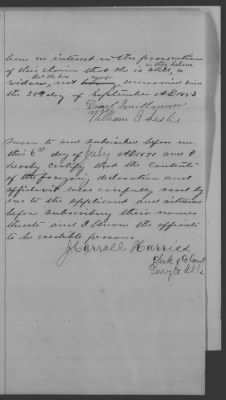 have no interest in the prosecution
of this claim that she is still a
as they believe
widow, not having remarried since
the 30th day of September A D 1883
William Sesk
Sworn to and subscribed before me
this 6th day of July A D 1888 and I
hereby certify that the contents
of the foregoing declaration and
affidavit was carefully read by
me to the applicant and witnesses
before subscribing their names
thereto and I know the affiants
to be credible persons
J Carroll Harriss
Clerk Co Court
Perry Co Ills